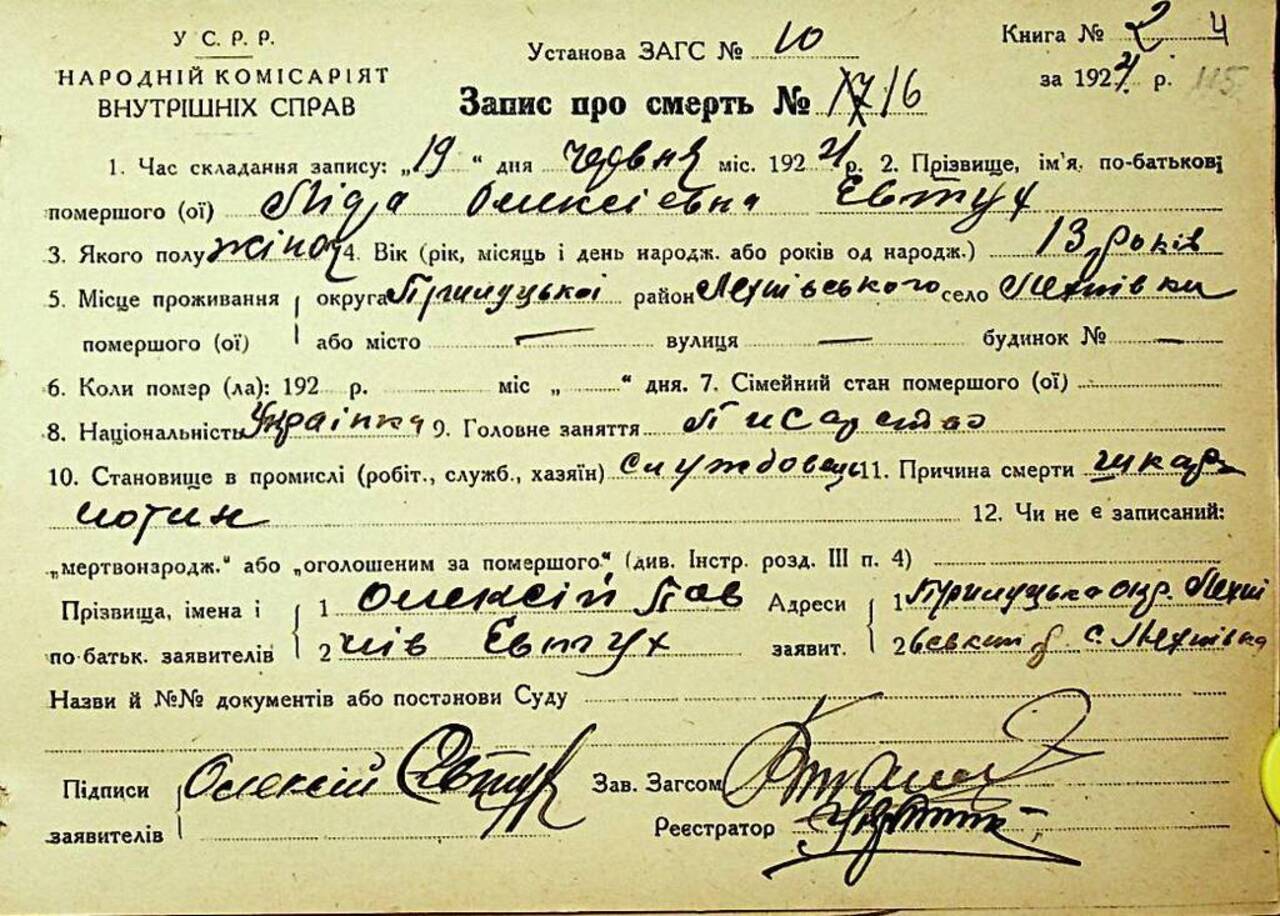 У С. Р. Р.
НАРОДНІЙ КОМІСАРІЯТ
ВНУТРІШНІХ СПРАВ
Установа ЗАГС № 10
Запис про смерть № 16
Книга № 2 4
за 1924 р. 115
1. Час складання запису: „19 “ дня червня міс. 1924 р. 2. Прізвище, ім'я, по-батькові
помершого (ої) Ліда Олексіевна Евтух
3. Якого полу жіноч 4. Вік (рік, місяць і день народж. або років од народж.) 13 років
5. Місце проживання округа Прилуцької район Лехнівського село Лехнівки
помершого (ої) або місто — вулиця — будинок № —
6. Коли помэр (ла): 192 р. міс „ “ дня. 7. Сімейний стан помершого (ої)
8. Національність Українка 9. Головне заняття Писарство
10. Становище в промислі (робіт., служб., хазяїн) Служдовець 11. Причина смерти шкар
лотин 12. Чи не є записаний:
„мертвонародж.“ або „оголошеним за помершого“ (див. Інстр. розд. III п. 4)
Прізвища, імена і 1 Олексій Пав Адреси 1 Прилуцька окр. Лехні
по-батьк. заявителів 2 лів Евтух заявит. 2 вський р с. Лехнівка
Назви й №№ документів або постанови Суду
Підписи Олексій Евтух Зав. Загсом
заявителів Реєстратор